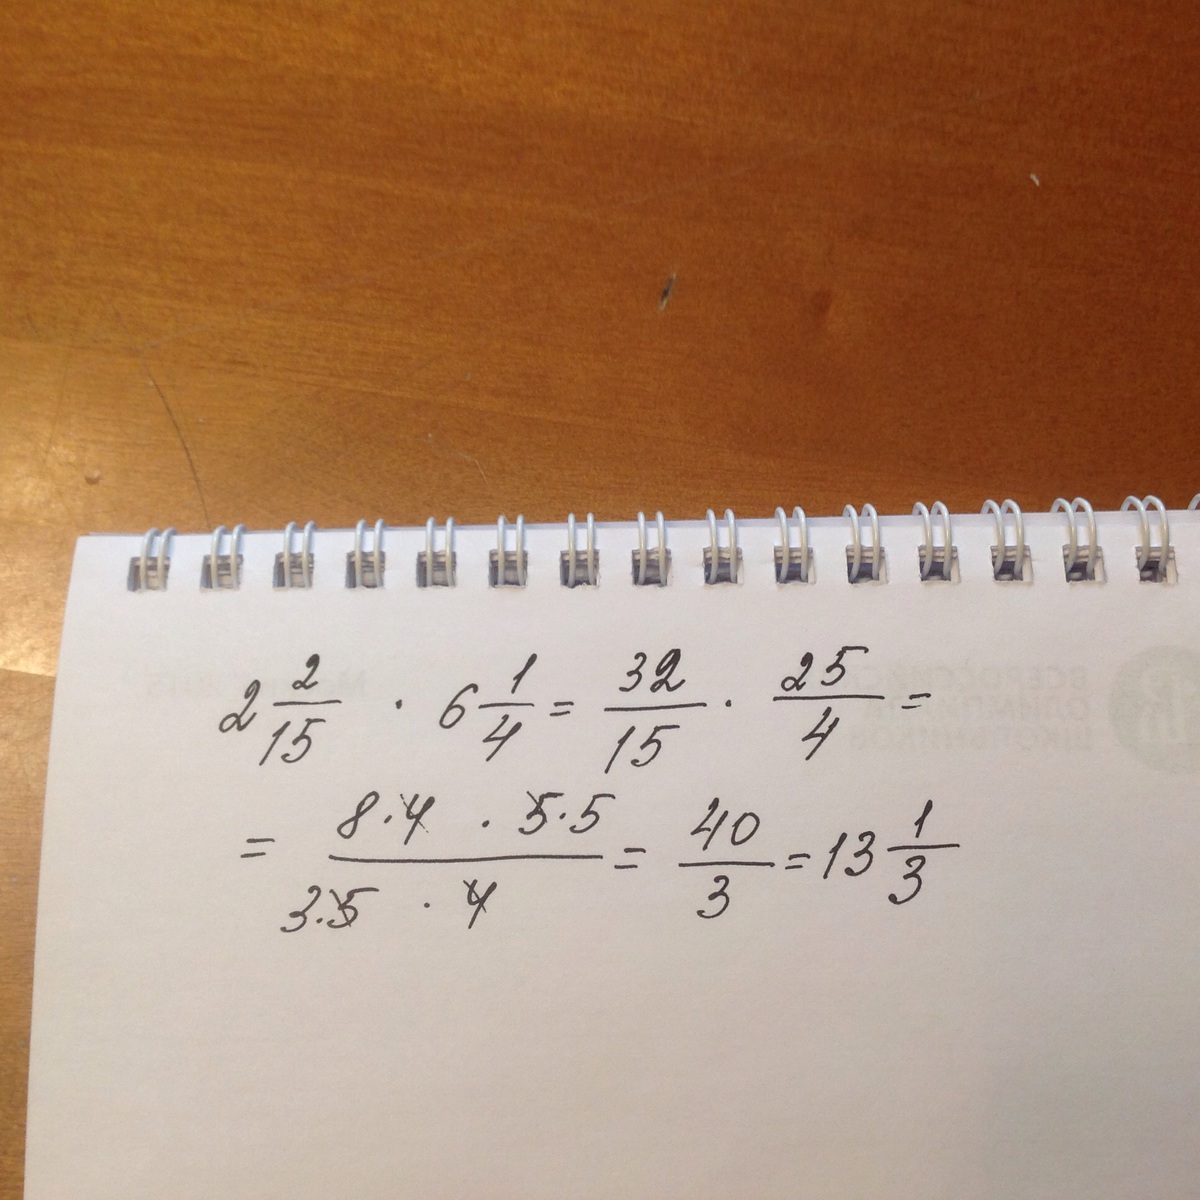 2 2/15 · 6 1/4 = 32/15 · 25/4 =
= 8·4 · 5·5 / 3·5 · 4 = 40/3 = 13 1/3